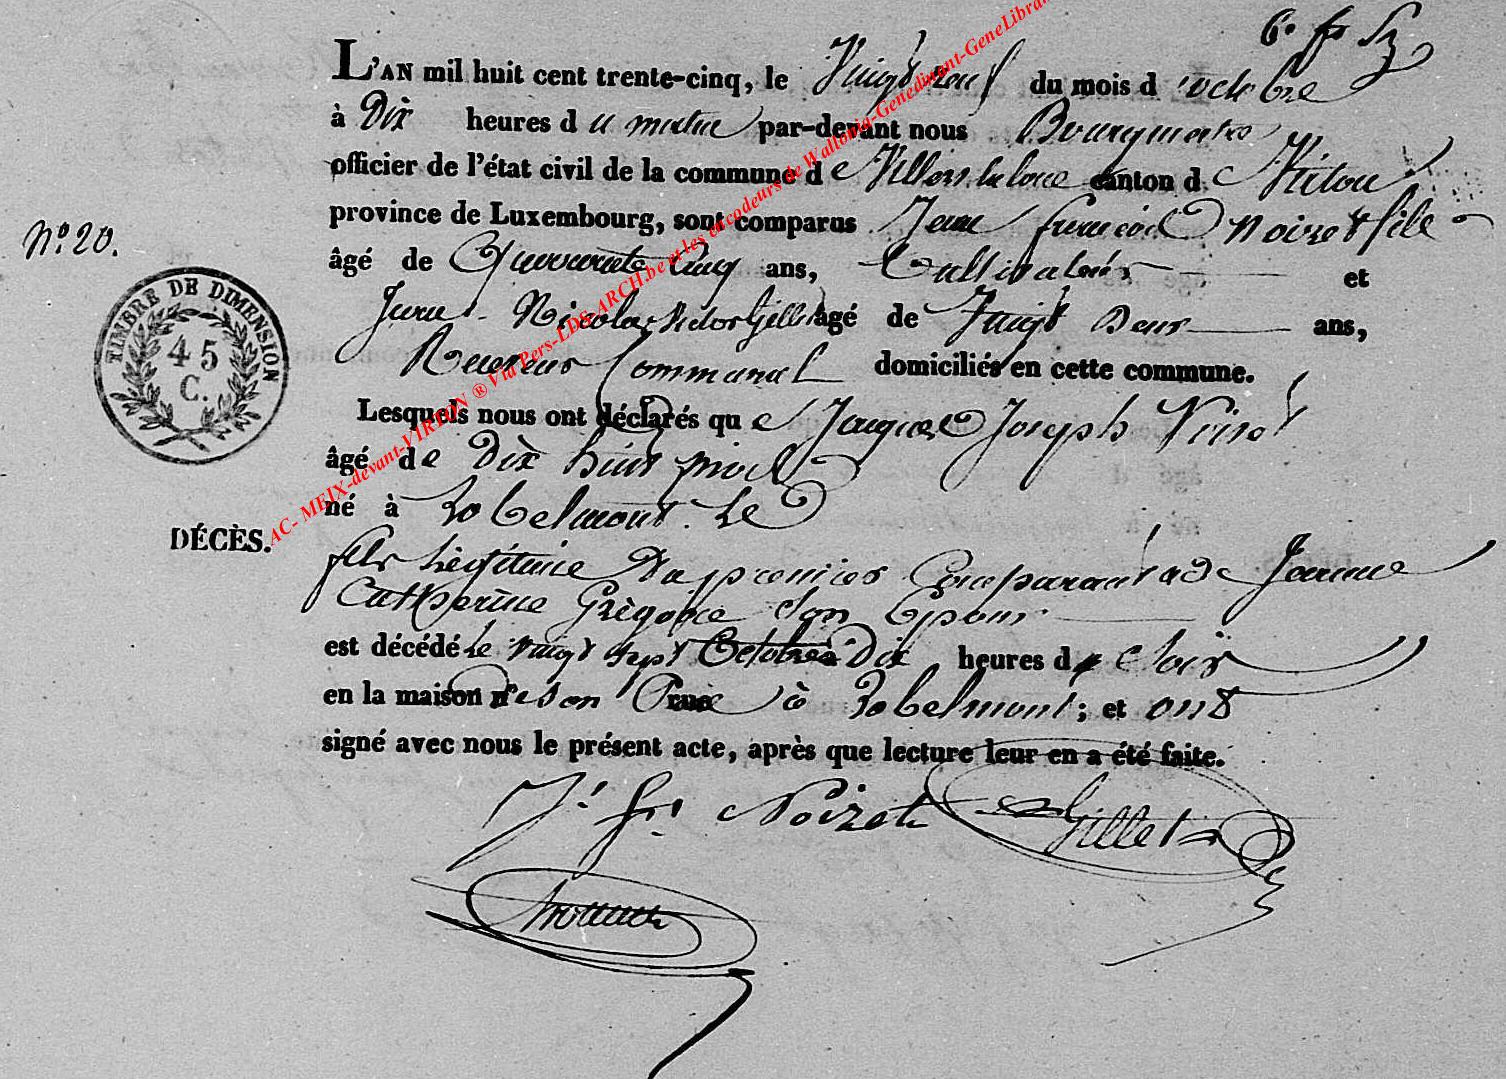 6e fr
L'AN mil huit cent trente-cinq, le Vingt neuf du mois d'octobre
à Dix heures du matin par-devant nous Bourgmestre
officier de l'état civil de la commune de Villers la loue canton de Virton
province de Luxembourg, sont comparus Jean françois Noizet fils
N° 20.
âgé de Quarante Cinq ans, Cultivateur et
Jean Nicolas Victor Gillet âgé de Vingt Deux ans,
Receveur Communal domiciliés en cette commune.
TIMBRE DE DIMENSION
45
C.
Lesquels nous ont déclarés que Jacques Joseph Noizet
âgé de Dix huit mois
né à Robelmont Le
DÉCÈS.
fils Légitime Du premier Comparant & de Jeanne
Catherine Grégoire Son Epouse
est décédé Le vingt sept Octobre à Dix heures de Soir
en la maison de son Père à Robelmont ; et ont
signé avec nous le présent acte, après que lecture leur en a été faite.
J. fr. Noizet Gillet
AC- MEIX-devant-VIRTON ® Via Pers-LDS-ARCH.be et les encodeurs de Wallonia-Genedinant-GeneLibra